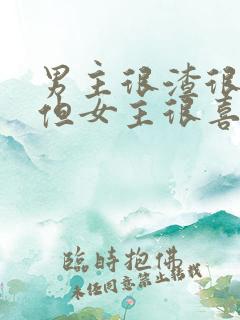 男主很渣很
但女主很喜
臨時抱佛
未经同意禁止转载